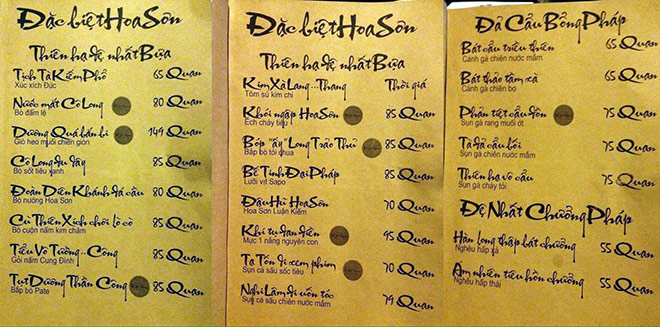 Đặc biệt Hoa Sơn
Thiên hạ đệ nhất Bựa
Tịch Tà Kiếm Phổ 65 Quan
Xúc xích Đức
Nước mắt Cô Long 80 Quan
Bò đẫm lệ
Dương Quá bắn bi 149 Quan
Giò heo muối chiên giòn
Cô Long du dây 85 Quan
Bò sốt tiêu xanh
Đoàn Diên Khánh đá cầu 80 Quan
Bò nướng Hoa Sơn
Cu Thiên Xích chơi lò cò 85 Quan
Bò cuộn nấm kim châm
Tiểu Vô Tướng...Công 85 Quan
Gỏi nấm Cung Đình
Tụt Dương Thần Công 85 Quan
Bắp bò Pate
Đặc biệt Hoa Sơn
Thiên hạ đệ nhất Bựa
Kim Xà Lang...Thang Thời giá
Tôm sú kim chi
Khói ngập Hoa Sơn 85 Quan
Ếch cháy tiêu
Bóp "ấy" Long Trảo Thủ 85 Quan
Bắp bò tỏi chua
Bế Tinh Đại Pháp 85 Quan
Lưỡi vịt Sapo
Đậu Hũ Hoa Sơn 70 Quan
Hoa Sơn Luận Kiếm
Khi tụ đan điền 95 Quan
Mực 1 nắng nguyên con
Tạ Tốn đi xem phim 70 Quan
Sụn cá sấu sốc tiêu
Nghi Lâm đi uốn tóc 79 Quan
Sụn cá sấu chiên nước mắm
Đả Cẩu Bổng Pháp
Bát cẩu triều thiên 65 Quan
Cánh gà chiên nước mắm
Bát thảo tầm xà 65 Quan
Cánh gà chiên bơ
Phản tiệt cẩu đồn 75 Quan
Sụn gà rang muối ớt
Tà đả cẩu bối 75 Quan
Sụn gà chiên nước mắm
Thiên hạ vô cẩu 75 Quan
Sụn gà cháy tỏi
Đệ Nhất Chưởng Pháp
Hàn long thập bát chưởng 55 Quan
Nghêu hấp xả
Ám nhiên tiêu hồn chưởng 55 Quan
Nghêu hấp thái